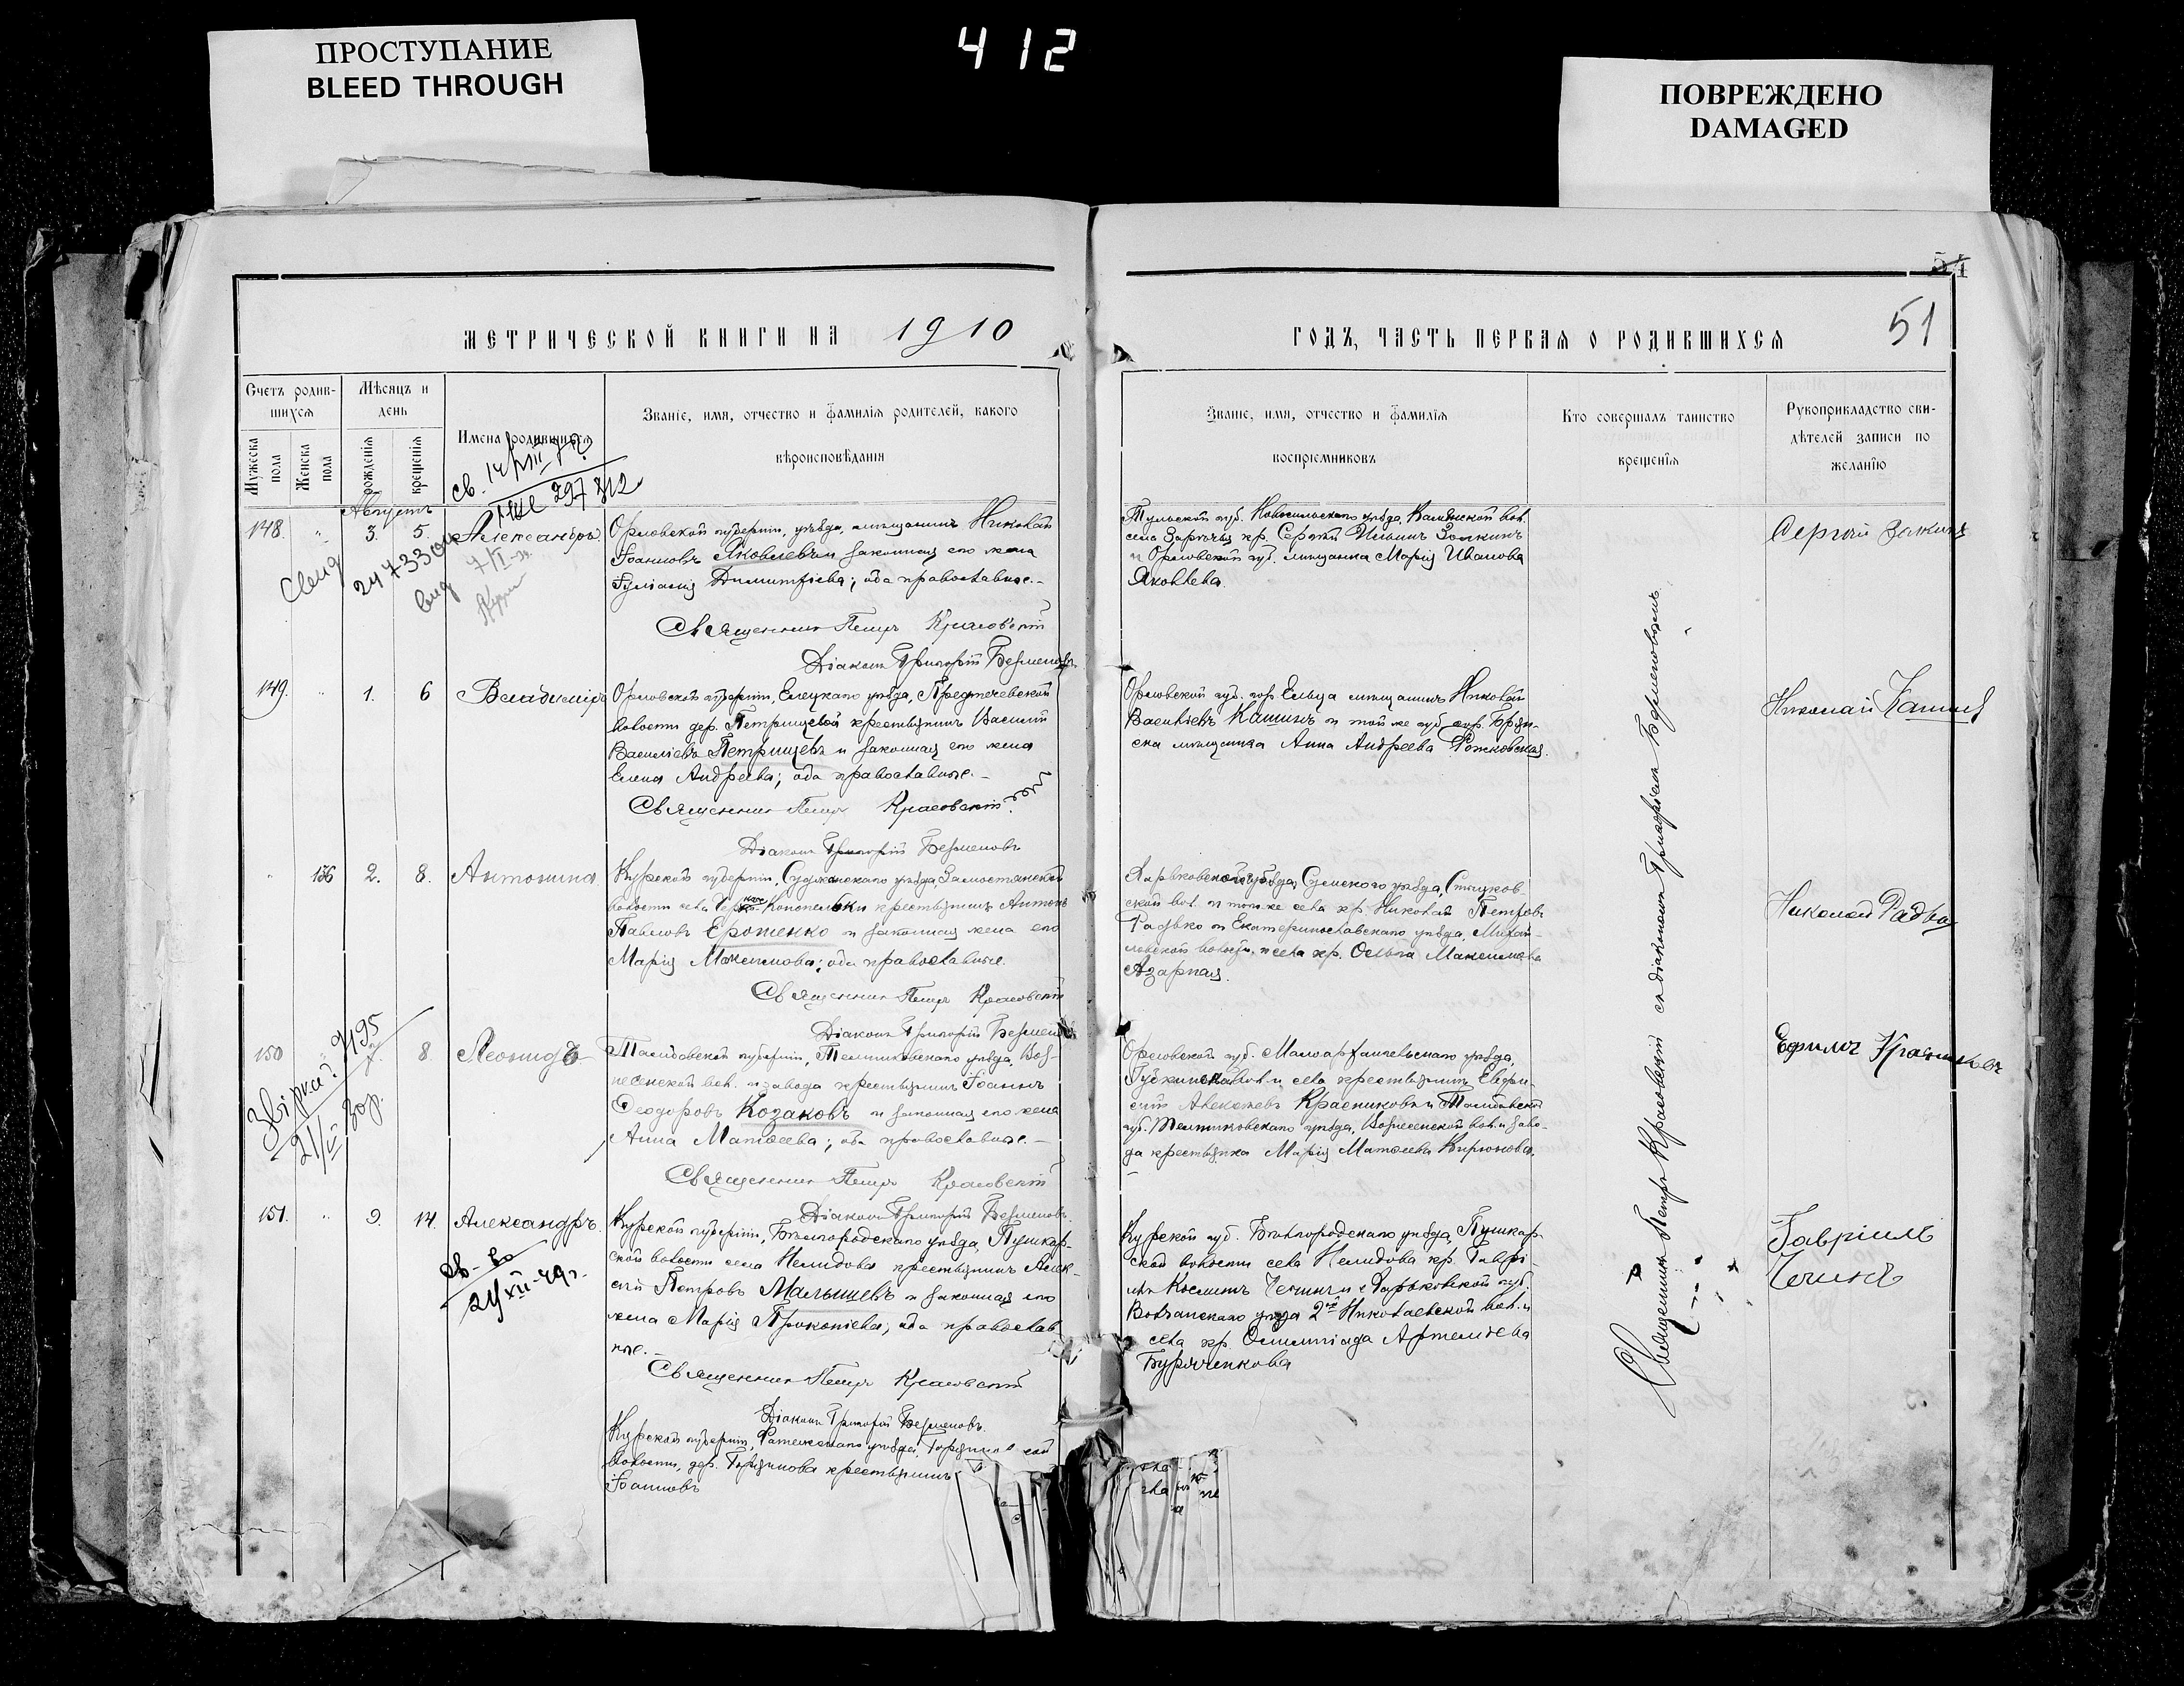 ПРОСТУПАНИЕ
BLEED THROUGH
412
ПОВРЕЖДЕНО
DAMAGED
МЕТРИЧЕСКОЙ КНИГИ НА 1910
ГОДЪ, ЧАСТЬ ПЕРВАЯ О РОДИВШИХСЯ
51
Счетъ родив-
шихся
Мужеска пола
Женска пола
Мѣсяцъ и
день
рожденія
крещенія
Имена родившихся
Званіе, имя, отчество и фамилія родителей, какого
вѣроисповѣданія
Званіе, имя, отчество и фамилія
воспріемниковъ
Кто совершалъ таинство
крещенія
Рукоприкладство сви-
дѣтелей записи по
желанію
Августъ
148. " 3. 5. Александръ
Орловской губерніи, уѣзда, мѣщанинъ Николай
Іоанновъ Яковлевъ и законная его жена
Іуліанія Димитріева; оба православные.-
Священникъ Петръ Красовскій
Діаконъ Григорій Безменовъ
Тульской губ. Новосильскаго уѣзда,
села кр. Сергій Ильинъ
и Орловской губ. мѣщанка Марія Иванова
Яковлева.
Сергѣй
149. " 1. 6 Владиміръ
Орловской губерніи, Елецкаго уѣзда, Предтечевской
волости дер. Петрищевой крестьянинъ Василій
Василіевъ Петрищевъ и законная его жена
Елена Андреева; оба православные.-
Священникъ Петръ Красовскій
Діаконъ Григорій Безменовъ
Орловской губ. гор. Ельца мѣщанинъ Николай
Василіевъ Кашинъ и той же губ. гор. Брян-
ска мѣщанка Анна Андреева Рожковская.
Николай Кашинъ
" 136 2. 8. Антонина
Курской губерніи, Суджанскаго уѣзда, Замостянской
волости села крестьянинъ Антонъ
Павловъ Ерошенко и законная жена его
Марія Максимова; оба православные.
Священникъ Петръ Красовскій
Діаконъ Григорій Безменовъ
Харьковской Сумскаго уѣзда,
ской вол. и того же села кр. Николай Петровъ
Радько и Екатеринославскаго уѣзда, Михай-
ловской волости, и села кр. Ольга Максимова
Азарная.
Николай Радько
150 " 8. Леонидъ
Тамбовской губерніи, Темниковскаго уѣзда, Воз-
несенской вол. и завода крестьянинъ Іоаннъ
Ѳеодоровъ Козаковъ и законная его жена
Анна Матѳеева; оба православные.-
Священникъ Петръ Красовскій
Діаконъ Григорій Безменовъ
Орловской губ. Малоархангельскаго уѣзда,
вол. и села крестьянинъ Евфи-
мій Алексѣевъ Красниковъ и Тамбовской
губ. Темниковскаго уѣзда, Вознесенской вол. и заво-
да крестьянка Марія Матѳеева Кирюхова.
Ефимъ Красниковъ
151. " 9. 14. Александръ.
Курской губерніи, Бѣлгородскаго уѣзда, Пушкар-
ской волости села Нелидова крестьянинъ Алек-
сій Петровъ Малышевъ и законная его
жена Марія Прокопіева; оба православ-
ные.-
Священникъ Петръ Красовскій
Діаконъ Григорій Безменовъ.
Курской губ. Бѣлгородскаго уѣзда, Пушкар-
ской волости села Нелидова кр. Гаврі-
илъ Косминъ и Харьковской губ.
Волчанскаго уѣзда 2й Николаевской вол. и
села кр. Олимпіада Артеміева
Бурляченкова
Гавріилъ
Курской губерніи, Фатежскаго уѣзда,
волости, дер. крестьянинъ
Іоанновъ
Священникъ Петръ Красовскій съ діакономъ Григоріемъ Безменовымъ.